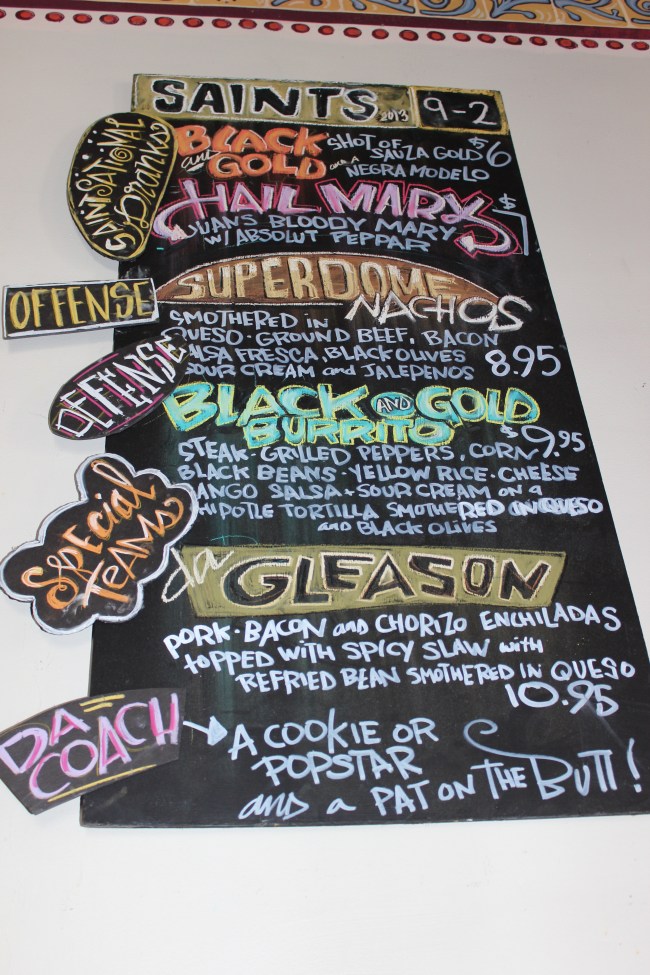 SAINTS 2013 9-2
SAINTSATIONAL
Dranks
BLACK and GOLD
SHOT OF
SAUZA GOLD $6
and A
NEGRA MODELO
HAIL MARY $7
JUANS BLOODY MARY
W/ ABSOLUT PEPPAR
OFFENSE
SUPERDOME
NACHOS
SMOTHERED IN
QUESO · GROUND BEEF, BACON
SALSA FRESCA, BLACK OLIVES
SOUR CREAM and JALEPENOS 8.95
DEFENSE
BLACK AND GOLD
BURRITO $9.95
STEAK · GRILLED PEPPERS, CORN
BLACK BEANS · YELLOW RICE · CHEESE
MANGO SALSA + SOUR CREAM ON a
CHIPOTLE TORTILLA SMOTHERED IN QUESO
and BLACK OLIVES
SPECIAL
TEAMS
da GLEASON
PORK · BACON and CHORIZO ENCHILADAS
TOPPED WITH SPICY SLAW with
REFRIED BEAN SMOTHERED IN QUESO
10.95
DA
COACH
A COOKIE OR
POPSTAR
and a PAT ON THE BUTT!